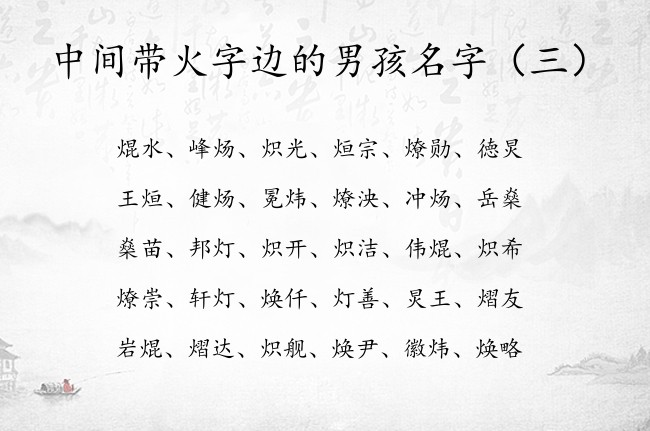 中间带火字边的男孩名字（三）
焜水、峰炀、炽光、烜宗、燎勋、徳炅
王烜、健炀、冕炜、燎泱、冲炀、岳燊
燊苗、邦灯、炽开、炽洁、伟焜、炽希
燎崇、轩灯、焕仟、灯善、炅王、熠友
岩焜、熠达、炽舰、焕尹、徽炜、焕略